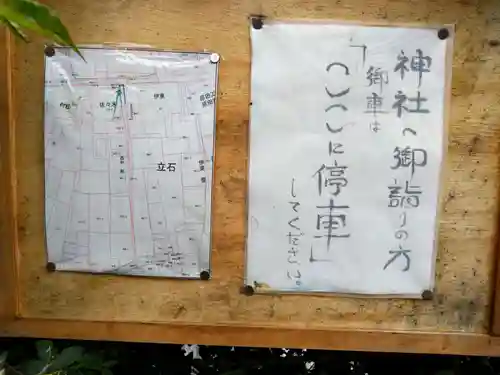 神社へ御詣りの方
御車は
「ここに停車」
してください。
立石
伊東